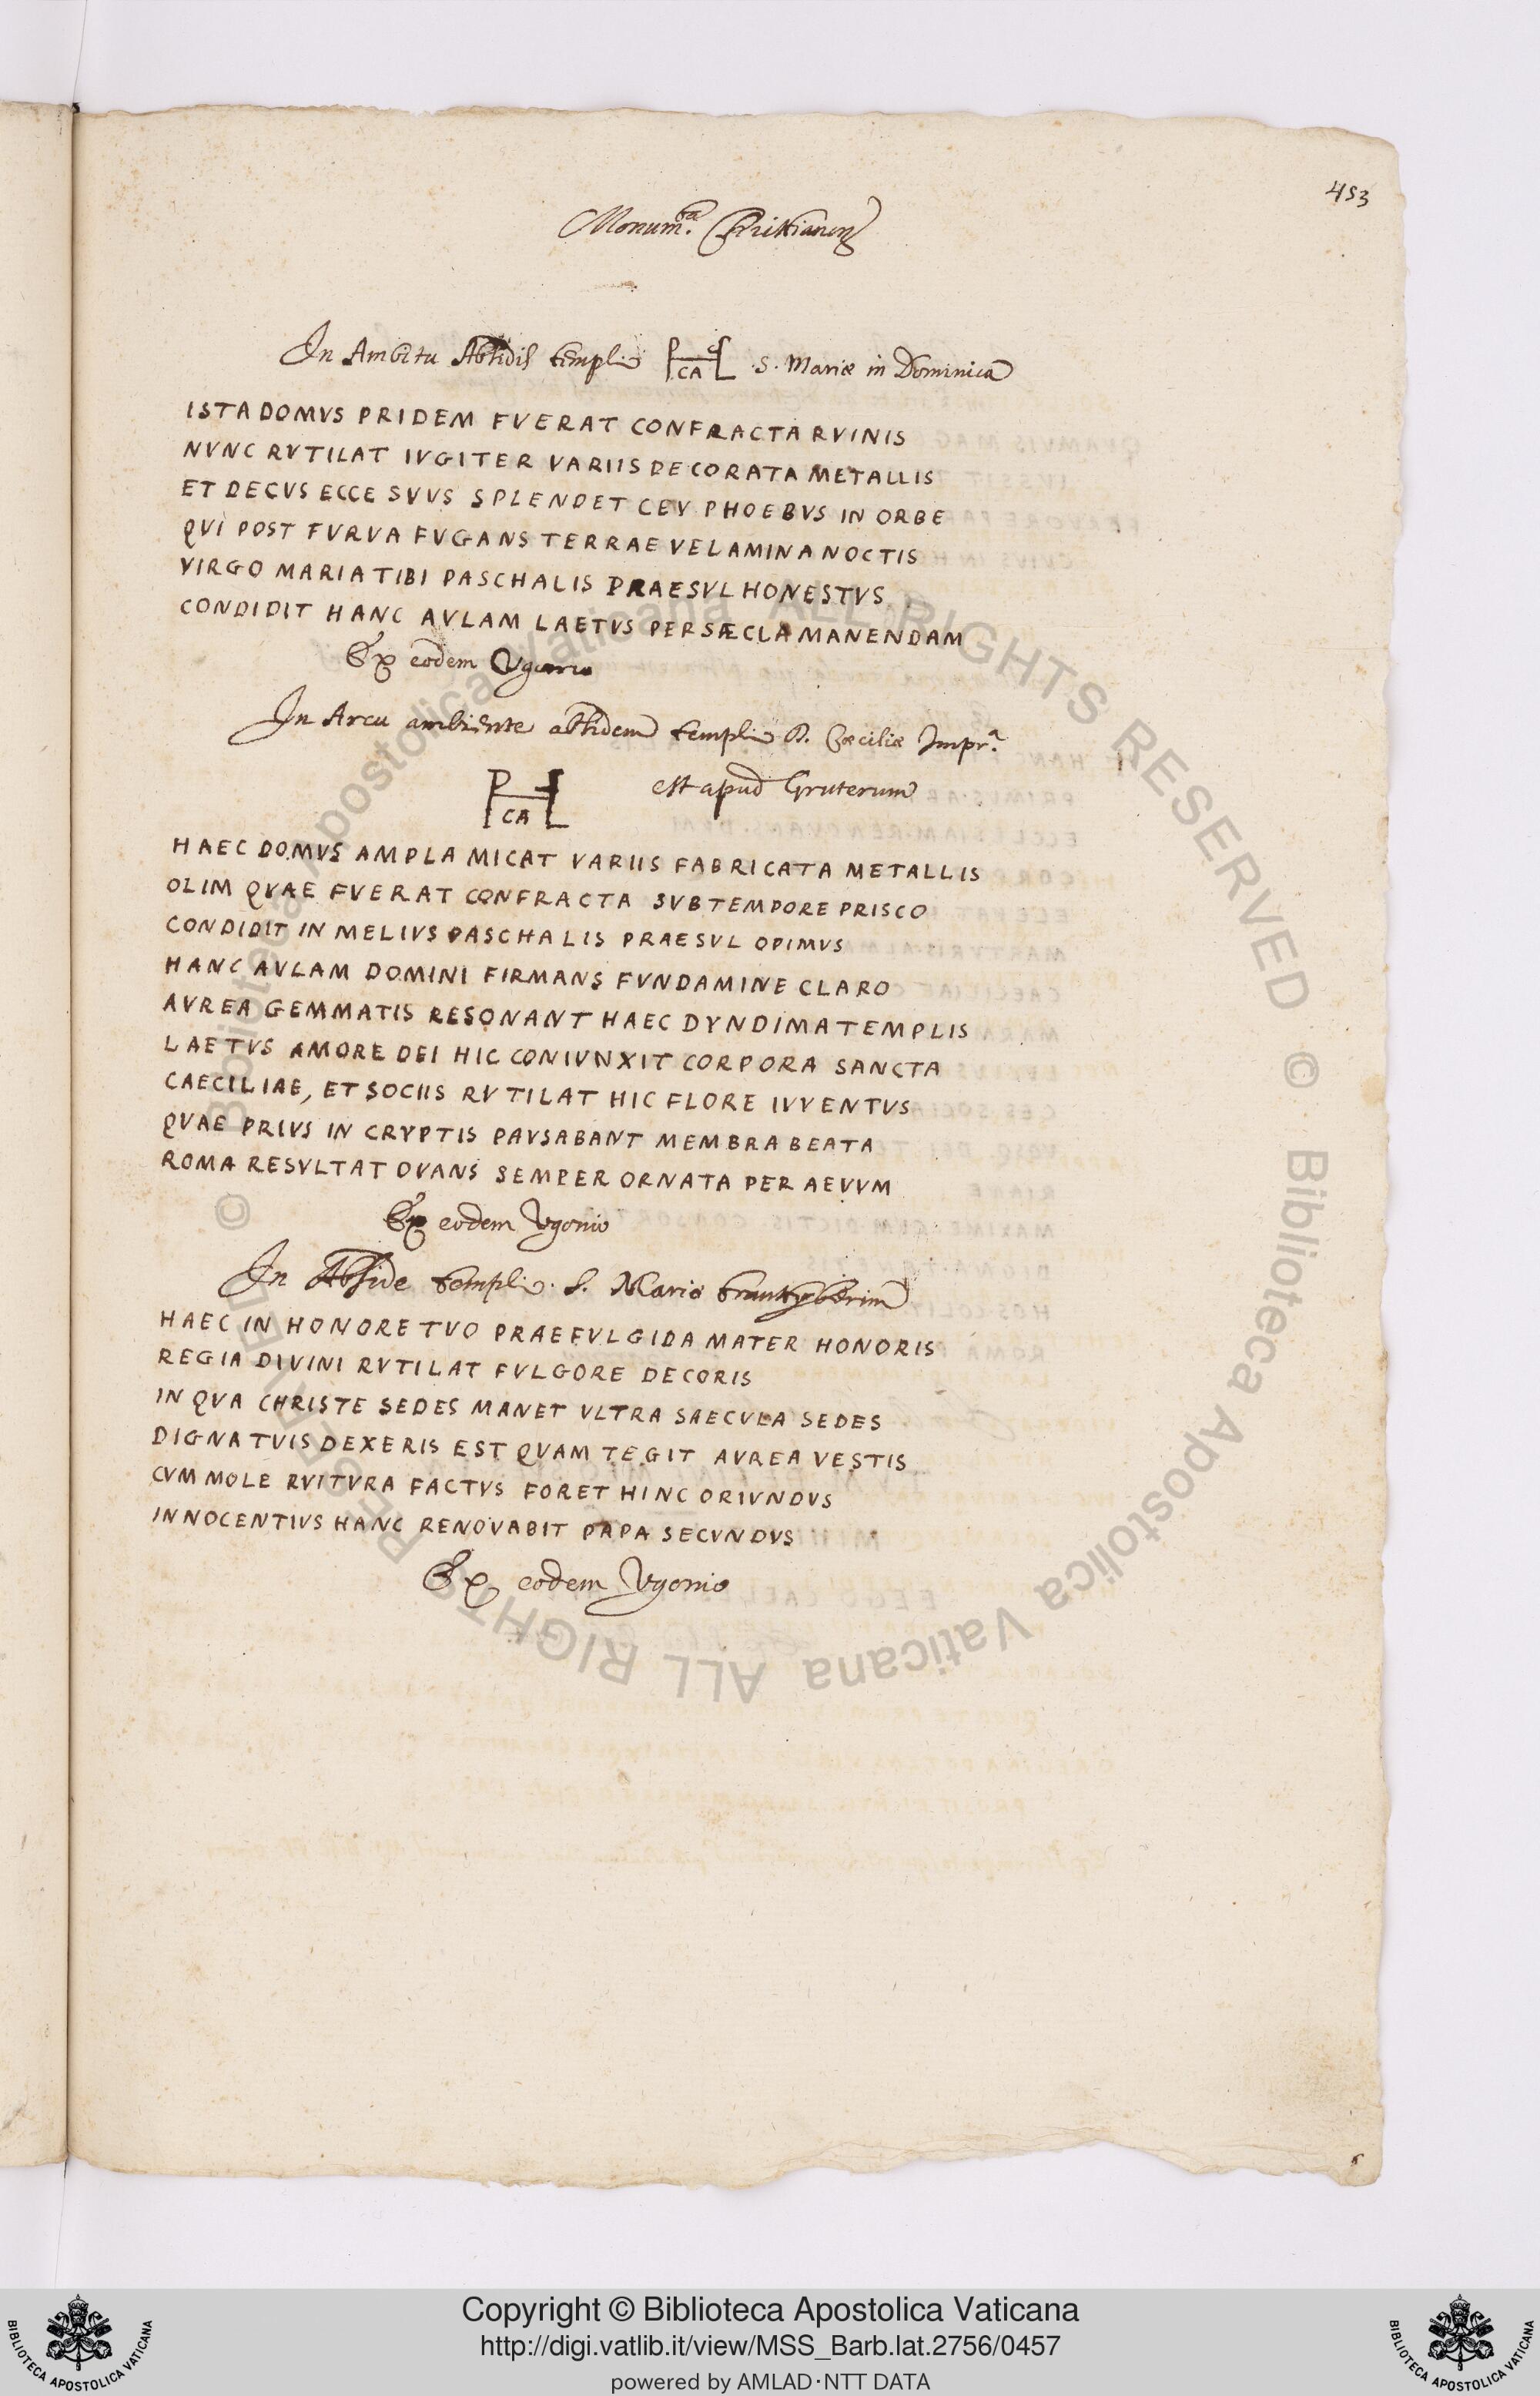 453
Monum.ta Christianorum
In Ambitu Absidis templi PSCAL S. Mariæ in Dominica
ISTA DOMVS PRIDEM FVERAT CONFRACTA RVINIS
NVNC RVTILAT IVGITER VARIIS DECORATA METALLIS
ET DECVS ECCE SVVS SPLENDET CEV PHOEBVS IN ORBE
QVI POST FVRVA FVGANS TERRAE VELAMINA NOCTIS
VIRGO MARIA TIBI PASCHALIS PRAESVL HONESTVS
CONDIDIT HANC AVLAM LAETVS PER SÆCLA MANENDAM
Ex eodem Vgonio
In Arcu ambiente absidem templi D. Cæciliæ Impr.a
PSCAL est apud Gruterum
HAEC DOMVS AMPLA MICAT VARIIS FABRICATA METALLIS
OLIM QVAE FVERAT CONFRACTA SVB TEMPORE PRISCO
CONDIDIT IN MELIVS PASCHALIS PRAESVL OPIMVS
HANC AVLAM DOMINI FIRMANS FVNDAMINE CLARO
AVREA GEMMATIS RESONANT HAEC DYNDIMA TEMPLIS
LAETVS AMORE DEI HIC CONIVNXIT CORPORA SANCTA
CAECILIAE, ET SOCIIS RVTILAT HIC FLORE IVVENTVS
QVAE PRIVS IN CRYPTIS PAVSABANT MEMBRA BEATA
ROMA RESVLTAT OVANS SEMPER ORNATA PER AEVVM
Ex eodem Vgonio
In Abside templi S. Mariæ transtyberim
HAEC IN HONORE TVO PRAEFVLGIDA MATER HONORIS
REGIA DIVINI RVTILAT FVLGORE DECORIS
IN QVA CHRISTE SEDES MANET VLTRA SAECVLA SEDES
DIGNA TVIS DEXERIS EST QVAM TEGIT AVREA VESTIS
CVM MOLE RVITVRA FACTVS FORET HINC ORIVNDVS
INNOCENTIVS HANC RENOVABIT PAPA SECVNDVS
Ex eodem Vgonio
© Biblioteca Apostolica Vaticana ALL RIGHTS RESERVED © Biblioteca Apostolica Vaticana ALL RIGHTS RESERVED
Copyright © Biblioteca Apostolica Vaticana
http://digi.vatlib.it/view/MSS_Barb.lat.2756/0457
powered by AMLAD·NTT DATA
BIBLIOTECA APOSTOLICA VATICANA
BIBLIOTECA APOSTOLICA VATICANA